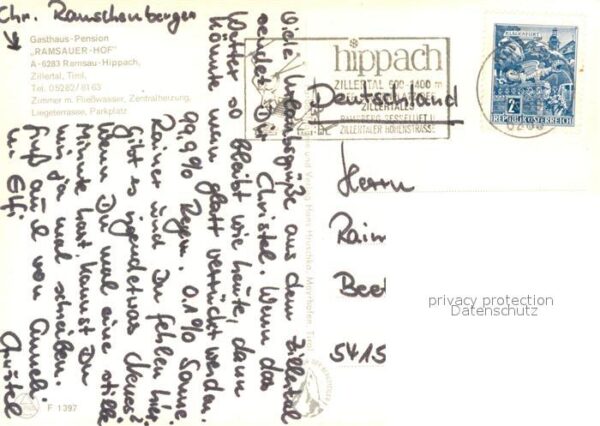 Chr. Ramschenberger
Gasthaus-Pension
"RAMSAUER-HOF"
A-6283 Ramsau-Hippach,
Zillertal, Tirol,
Tel. 05282/8163
Zimmer m. Fließwasser, Zentralheizung,
Liegeterrasse, Parkplatz
hippach
ZILLERTAL 600-1400 m
ZILLERTALES
RAMSBERG-SESSELLIFT
ZILLERTALER HÖHENSTRASSE
KLAGENFURT
2
REPUBLIK ÖSTERREICH
Deutschland
Herrn
Rain
Beet
5415
privacy protection
Datenschutz
Viele Urlaubsgrüße aus dem Zillertal
sendet Dir Christel. Wenn das
Wetter so bleibt wie heute, dann
könnte man glatt verrückt werden.
99,9% Regen, 0,1% Sonne
Rainer und Du fehlen hier.
Gibt es irgendetwas Neues?
Wenn Du mal eine stille
Minute hast, kannst Du
mir ja mal schreiben.
Gruß auch von Anneli
u. Elfi
Christel
F 1397